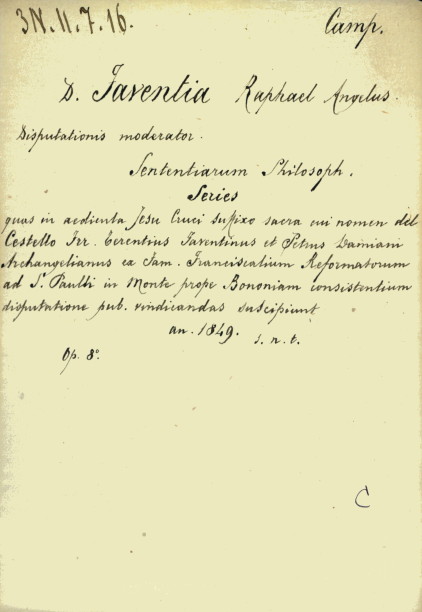 3N.11.7.16.
Camp.
D. Faventia Raphael Angelus.
Disputationis moderator.
Sententiarum Philosoph.
Series
quas in aedicula Jesu Cruci suffixo sacra cui nomen del
Cestello Frr. Terentius Faventinus et Petrus Damiani
Archangelianus ex Fam. Franciscalium Reformatorum
ad S. Paulli in Monte prope Bononiam consistentium
disputatione pub. vindicandas suscipiunt
an. 1849. s. n. t.
Op. 8º.
C